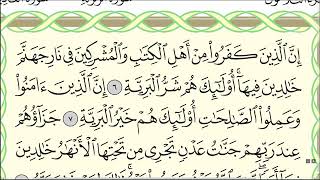 إِنَّ ٱلَّذِينَ كَفَرُوا۟ مِنْ أَهْلِ ٱلْكِتَٰبِ وَٱلْمُشْرِكِينَ فِى نَارِ جَهَنَّمَ
خَٰلِدِينَ فِيهَآ ۚ أُو۟لَٰٓئِكَ هُمْ شَرُّ ٱلْبَرِيَّةِ ٦ إِنَّ ٱلَّذِينَ ءَامَنُوا۟
وَعَمِلُوا۟ ٱلصَّٰلِحَٰتِ أُو۟لَٰٓئِكَ هُمْ خَيْرُ ٱلْبَرِيَّةِ ٧ جَزَآؤُهُمْ
عِندَ رَبِّهِمْ جَنَّٰتُ عَدْنٍ تَجْرِى مِن تَحْتِهَا ٱلْأَنْهَٰرُ خَٰلِدِينَ